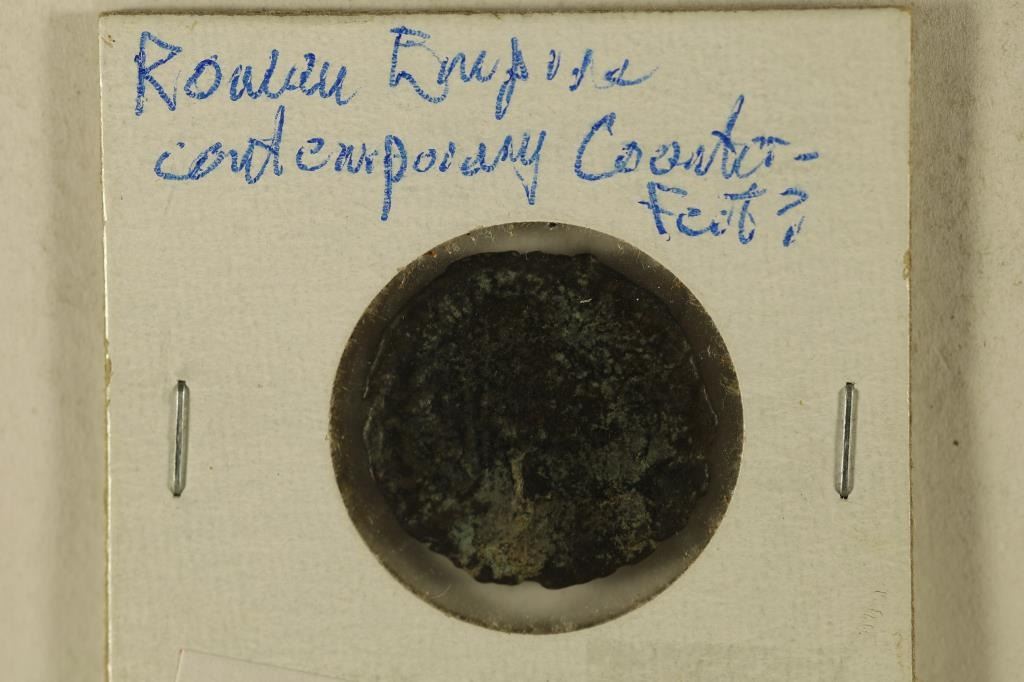 Roman Empire
contemporary Counter-
Feit?